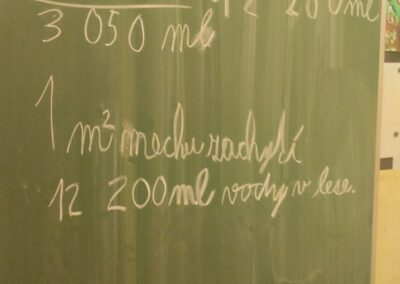 12 200ml
3 050 ml
1 m² mechu zachytí
12 200ml vody v lese.